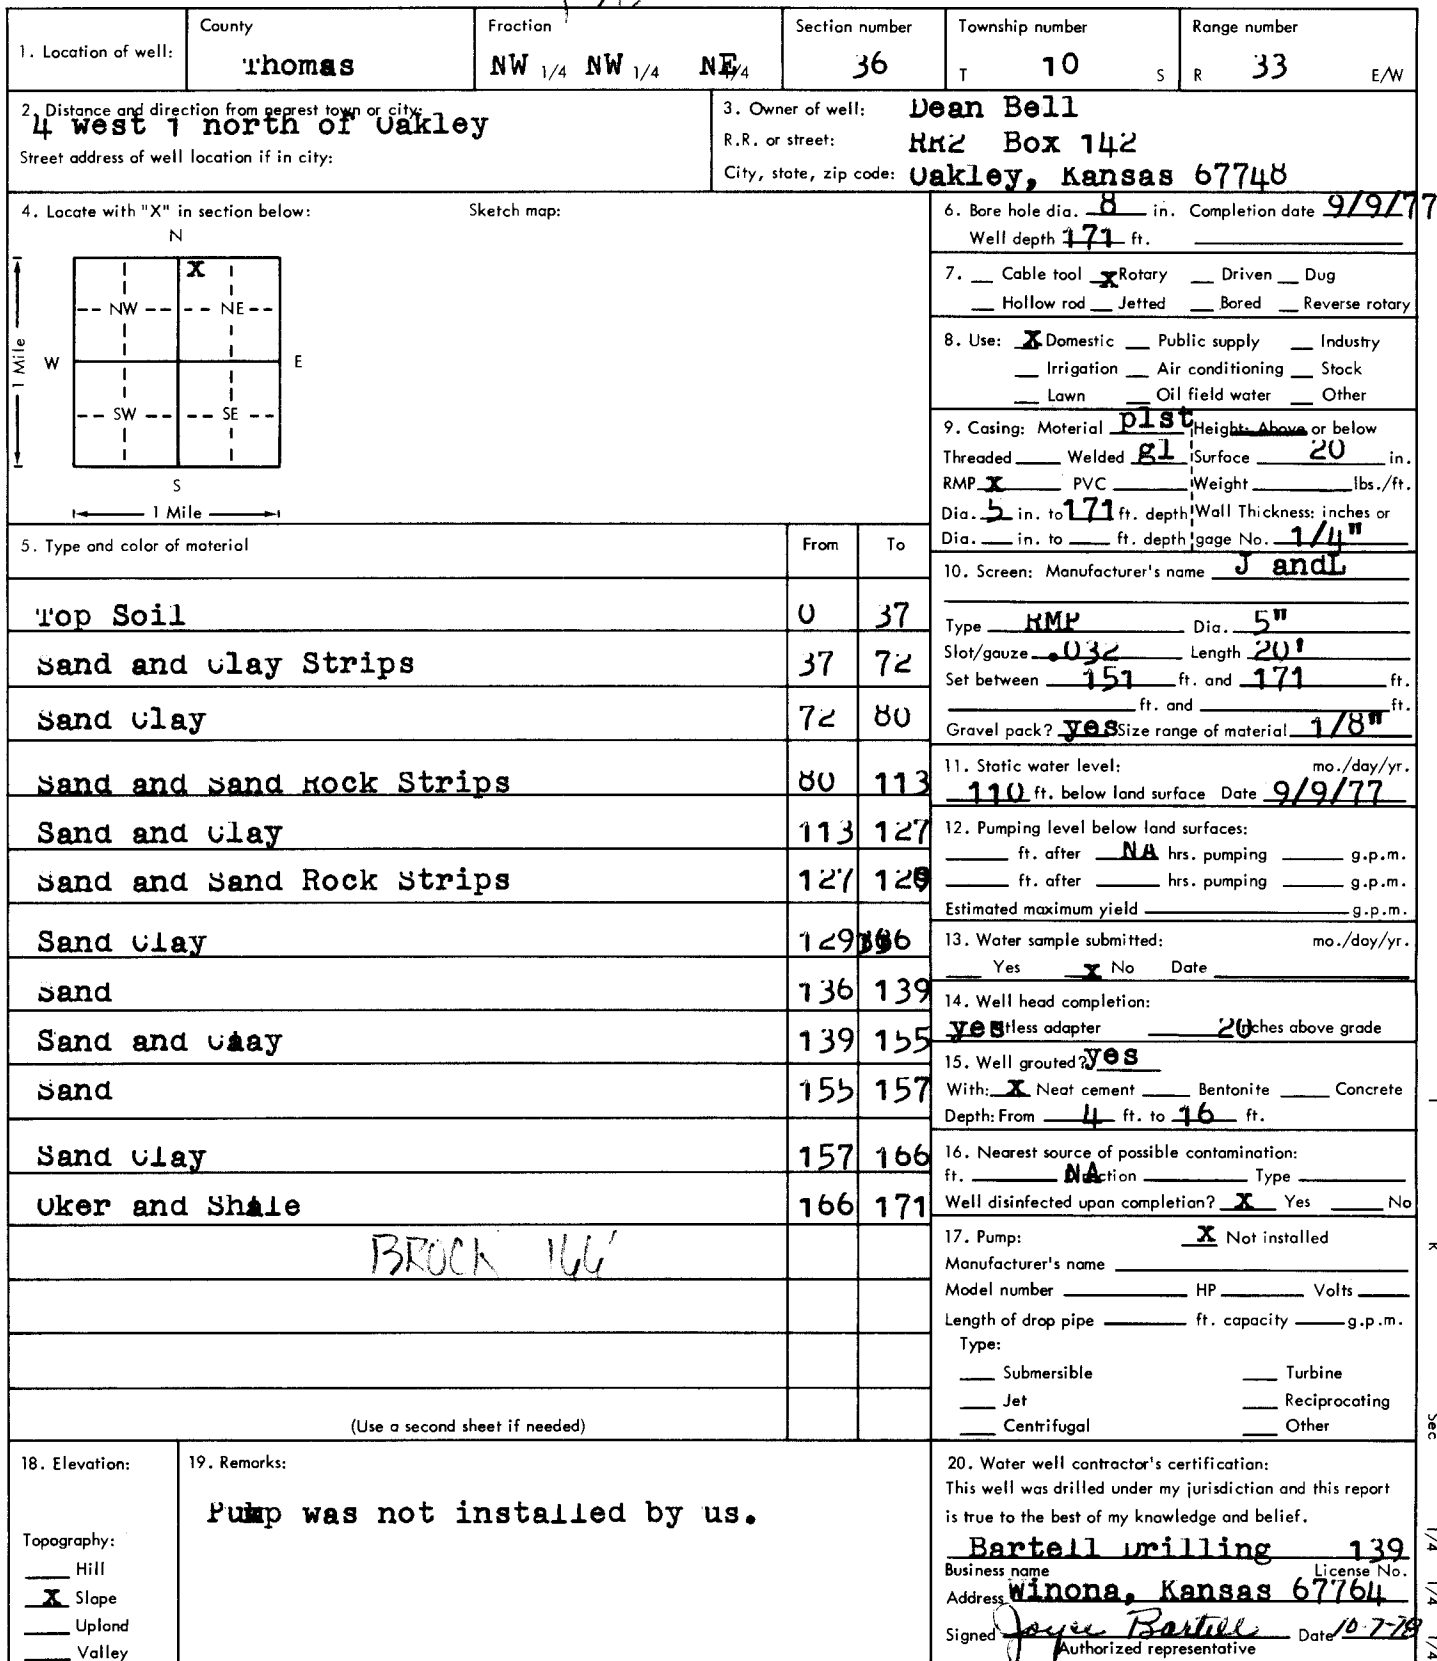 County Fraction Section number Township number Range number
1. Location of well: Thomas NW 1/4 NW 1/4 NE 1/4 36 T 10 S R 33 E/W
2. Distance and direction from nearest town or city:
4 west 1 north of Oakley
Street address of well location if in city:
3. Owner of well: Dean Bell
R.R. or street: RR2 Box 142
City, state, zip code: Oakley, Kansas 67748
4. Locate with "X" in section below: Sketch map:
N
X
NW NE
W E
SW SE
S
1 Mile
1 Mile
5. Type and color of material From To
Top Soil 0 37
Sand and Clay Strips 37 72
Sand Clay 72 80
Sand and Sand Rock Strips 80 113
Sand and Clay 113 127
Sand and Sand Rock Strips 127 129
Sand Clay 129 136
Sand 136 139
Sand and Claay 139 155
Sand 155 157
Sand Clay 157 166
Oker and Shale 166 171
BROCK 166'
(Use a second sheet if needed)
6. Bore hole dia. 8 in. Completion date 9/9/77
Well depth 171 ft.
7. Cable tool X Rotary Driven Dug
Hollow rod Jetted Bored Reverse rotary
8. Use: X Domestic Public supply Industry
Irrigation Air conditioning Stock
Lawn Oil field water Other
9. Casing: Material plst Height: Above or below
Threaded Welded gl Surface 20 in.
RMP X PVC Weight lbs./ft.
Dia. 5 in. to 171 ft. depth Wall Thickness: inches or
Dia. in. to ft. depth gage No. 1/4"
10. Screen: Manufacturer's name J andL
Type RMP Dia. 5"
Slot/gauze .032 Length 20'
Set between 151 ft. and 171 ft.
ft. and ft.
Gravel pack? yes Size range of material 1/8"
11. Static water level: mo./day/yr.
110 ft. below land surface Date 9/9/77
12. Pumping level below land surfaces:
ft. after NA hrs. pumping g.p.m.
ft. after hrs. pumping g.p.m.
Estimated maximum yield g.p.m.
13. Water sample submitted: mo./day/yr.
Yes X No Date
14. Well head completion:
yes tless adapter 20 inches above grade
15. Well grouted? yes
With: X Neat cement Bentonite Concrete
Depth: From 4 ft. to 16 ft.
16. Nearest source of possible contamination:
ft. NA Direction Type
Well disinfected upon completion? X Yes No
17. Pump: X Not installed
Manufacturer's name
Model number HP Volts
Length of drop pipe ft. capacity g.p.m.
Type:
Submersible Turbine
Jet Reciprocating
Centrifugal Other
18. Elevation:
Topography:
Hill
X Slope
Upland
Valley
19. Remarks:
Pump was not installed by us.
20. Water well contractor's certification:
This well was drilled under my jurisdiction and this report
is true to the best of my knowledge and belief.
Bartell Drilling 139
Business name License No.
Address Winona, Kansas 67764
Signed Joyce Bartell Date 10-7-78
Authorized representative
T
R
Sec
1/4 1/4 1/4